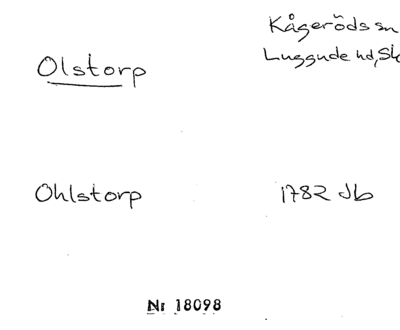 Olstorp
Kågeröds sn
Luggude hd, Sk
Ohlstorp
1782 Jb
Nr 18098